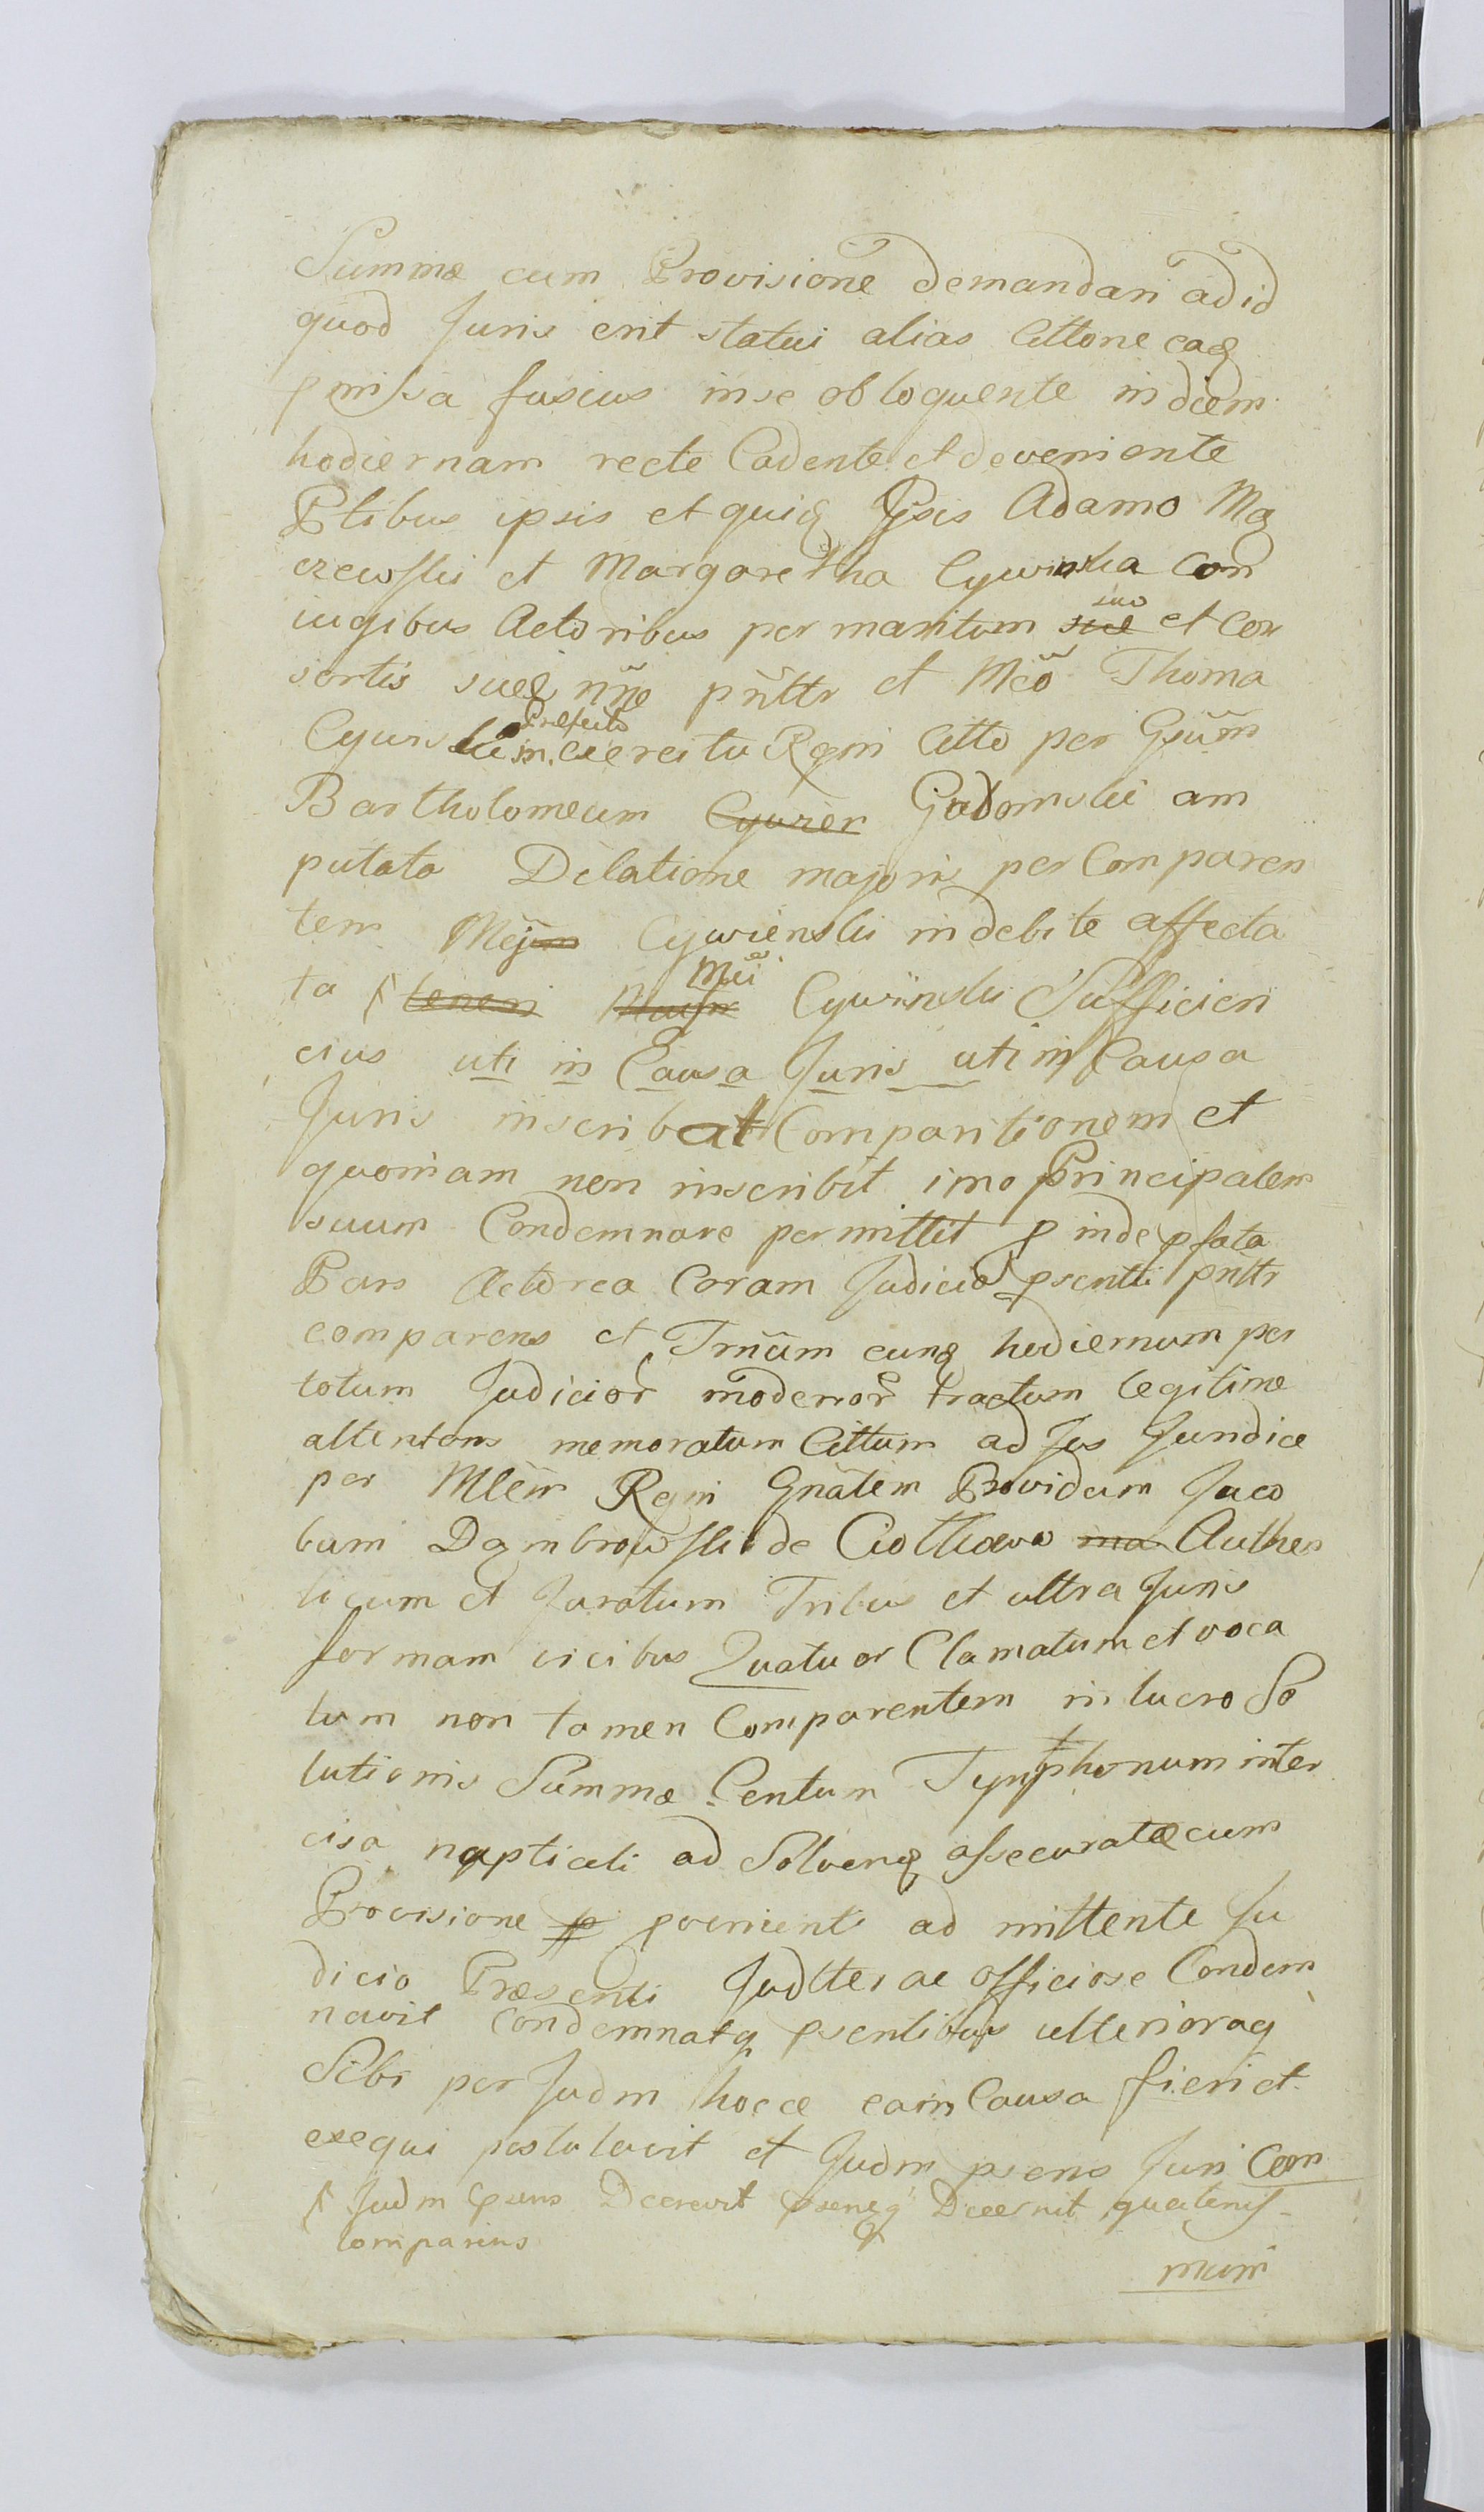 Summæ cum Provisione demandari ad id
quod Juris erit statui alias Cittone eaq
pmissa fusius in se obloquente in diem
hodiernam recte Cadente et deveniente
Ptibus ipsis et quiq Gsis Adamo Mą
czewski et Margaretha Cywinska Con
iugibus Actoribus per maritum suo et Con
sortis suæ nñe pñttr et Mco Thoma
Cywinski Præfecto in exercitu Regni Citto per Gsum
Bartholomeum Cywier Gadomski am
putata Dilatione majoris per Comparen
tem Mejum Cywienski indebite affecta
ta teneri Mci Cywinski Sufficien
cius uti in Causa Juris uti in Causa
Juris inscribat Comparitionem et
quoniam non inscribit imo Principalem
suum Condemnare permittit pinde pfata
Pars Actorea Coram Judicio psenti pnttr
comparens et Trnum eunq hodiernum per
totum Judicior modernor tractum legitime
attentans memoratum Cittum ad Jus Juridice
per Mlem Regni Gnatem Providum Jaco
bum Dąmbrowski de Ciothowo ma Authen
ticum et Juratum Tribus et ultra Juris
formam vicibus Quatuor Clamatum et voca
tum non tamen Comparentem in lucro So
lutionis Summæ Centum Tynphonum inter
cisa nuptiali ad Solvenq assecuratæ cum
Provisione p pvenienti admittente Ju
dicio Præsenti Judtter ac officiose Condem
navit Condemnatq psentibus ulterioraq
Sibi per Judm hocce ea in Causa fieri et
exequi postulavit et Judm psens Juri Com
Judm psens Decrevit psensq Decernit quatenus
comparens
muni